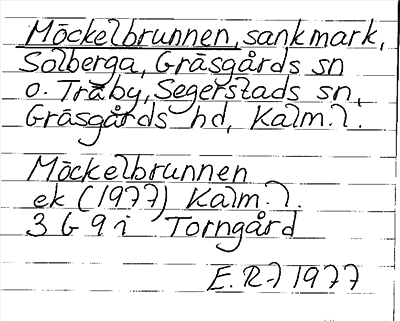 Möckelbrunnen, sankmark,
Solberga, Gräsgårds sn
o. Träby, Segerstads sn,
Gräsgårds hd, Kalm. l.
Möckelbrunnen
ek (1977) Kalm. l.
3 G 9 i Torngård
E. R-l 1977